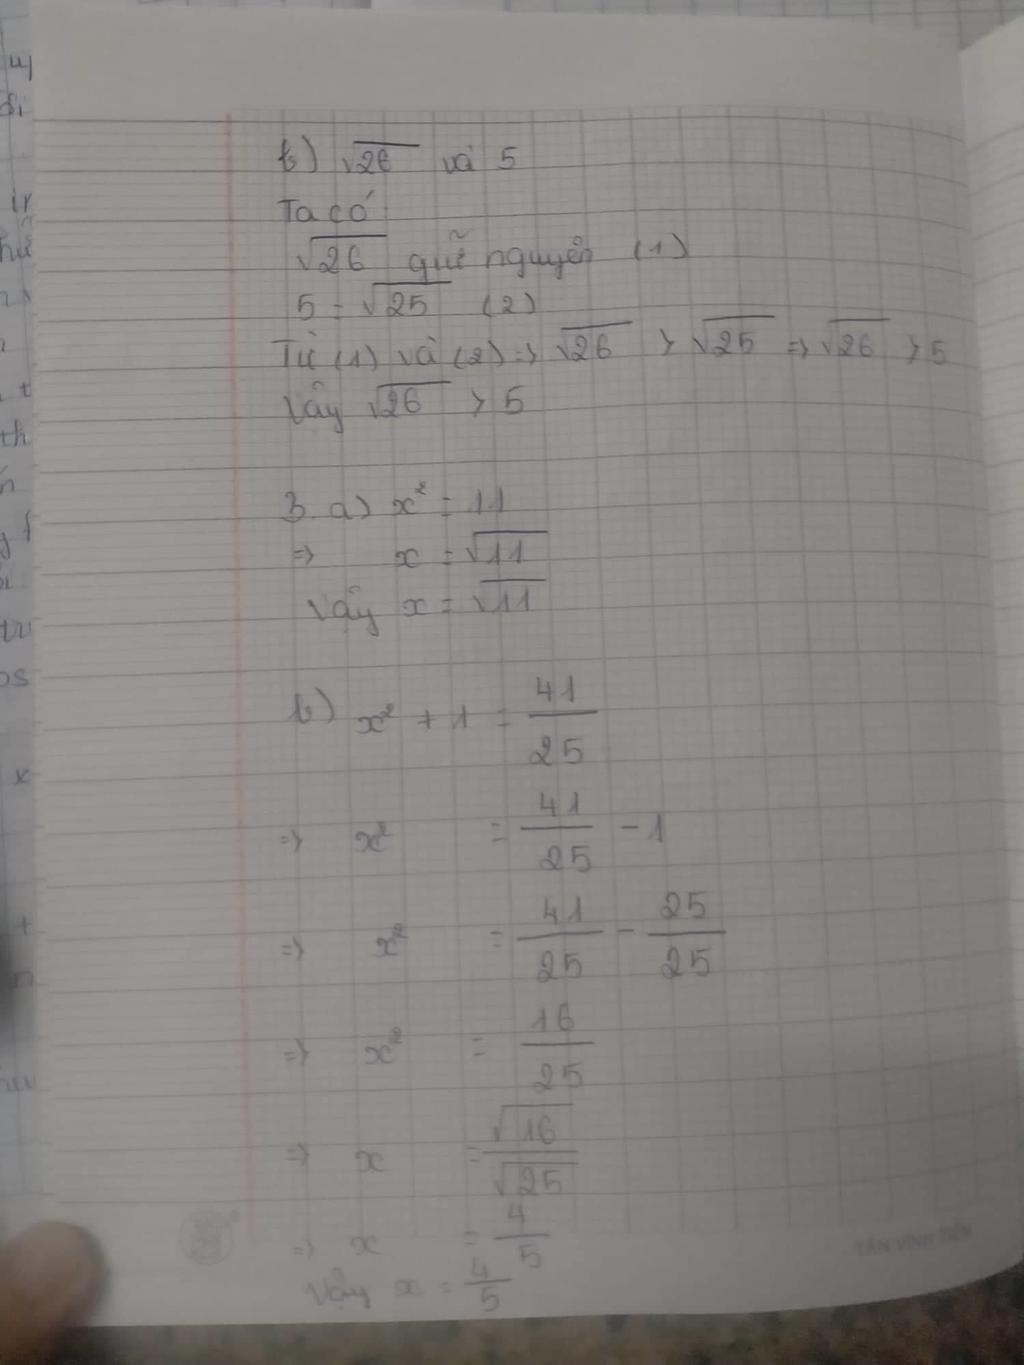 b) √26 và 5
Ta có
√26 giữ nguyên (1)
5 = √25 (2)
Từ (1) và (2) => √26 > √25 => √26 > 5
Vậy √26 > 5
3. a) x² = 11
=> x = √11
Vậy x = √11
b) x² + 1 = 41/25
=> x² = 41/25 - 1
=> x² = 41/25 - 25/25
=> x² = 16/25
=> x = √16/√25
=> x = 4/5
Vậy x = 4/5
TÂN VĨNH TIẾN